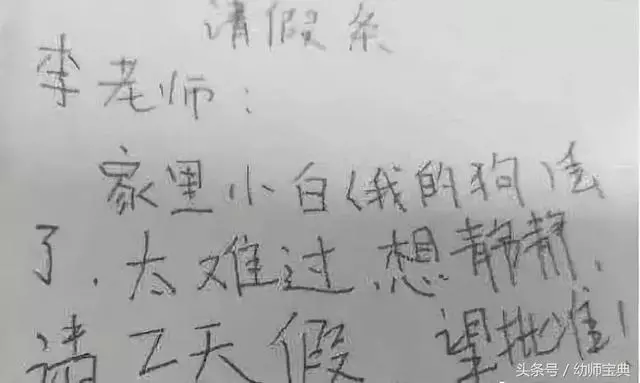 请假条
李老师：
家里小白(我的狗)
了.太难过.想静静.
请2天假 望批准!
头条号 / 幼师宝典